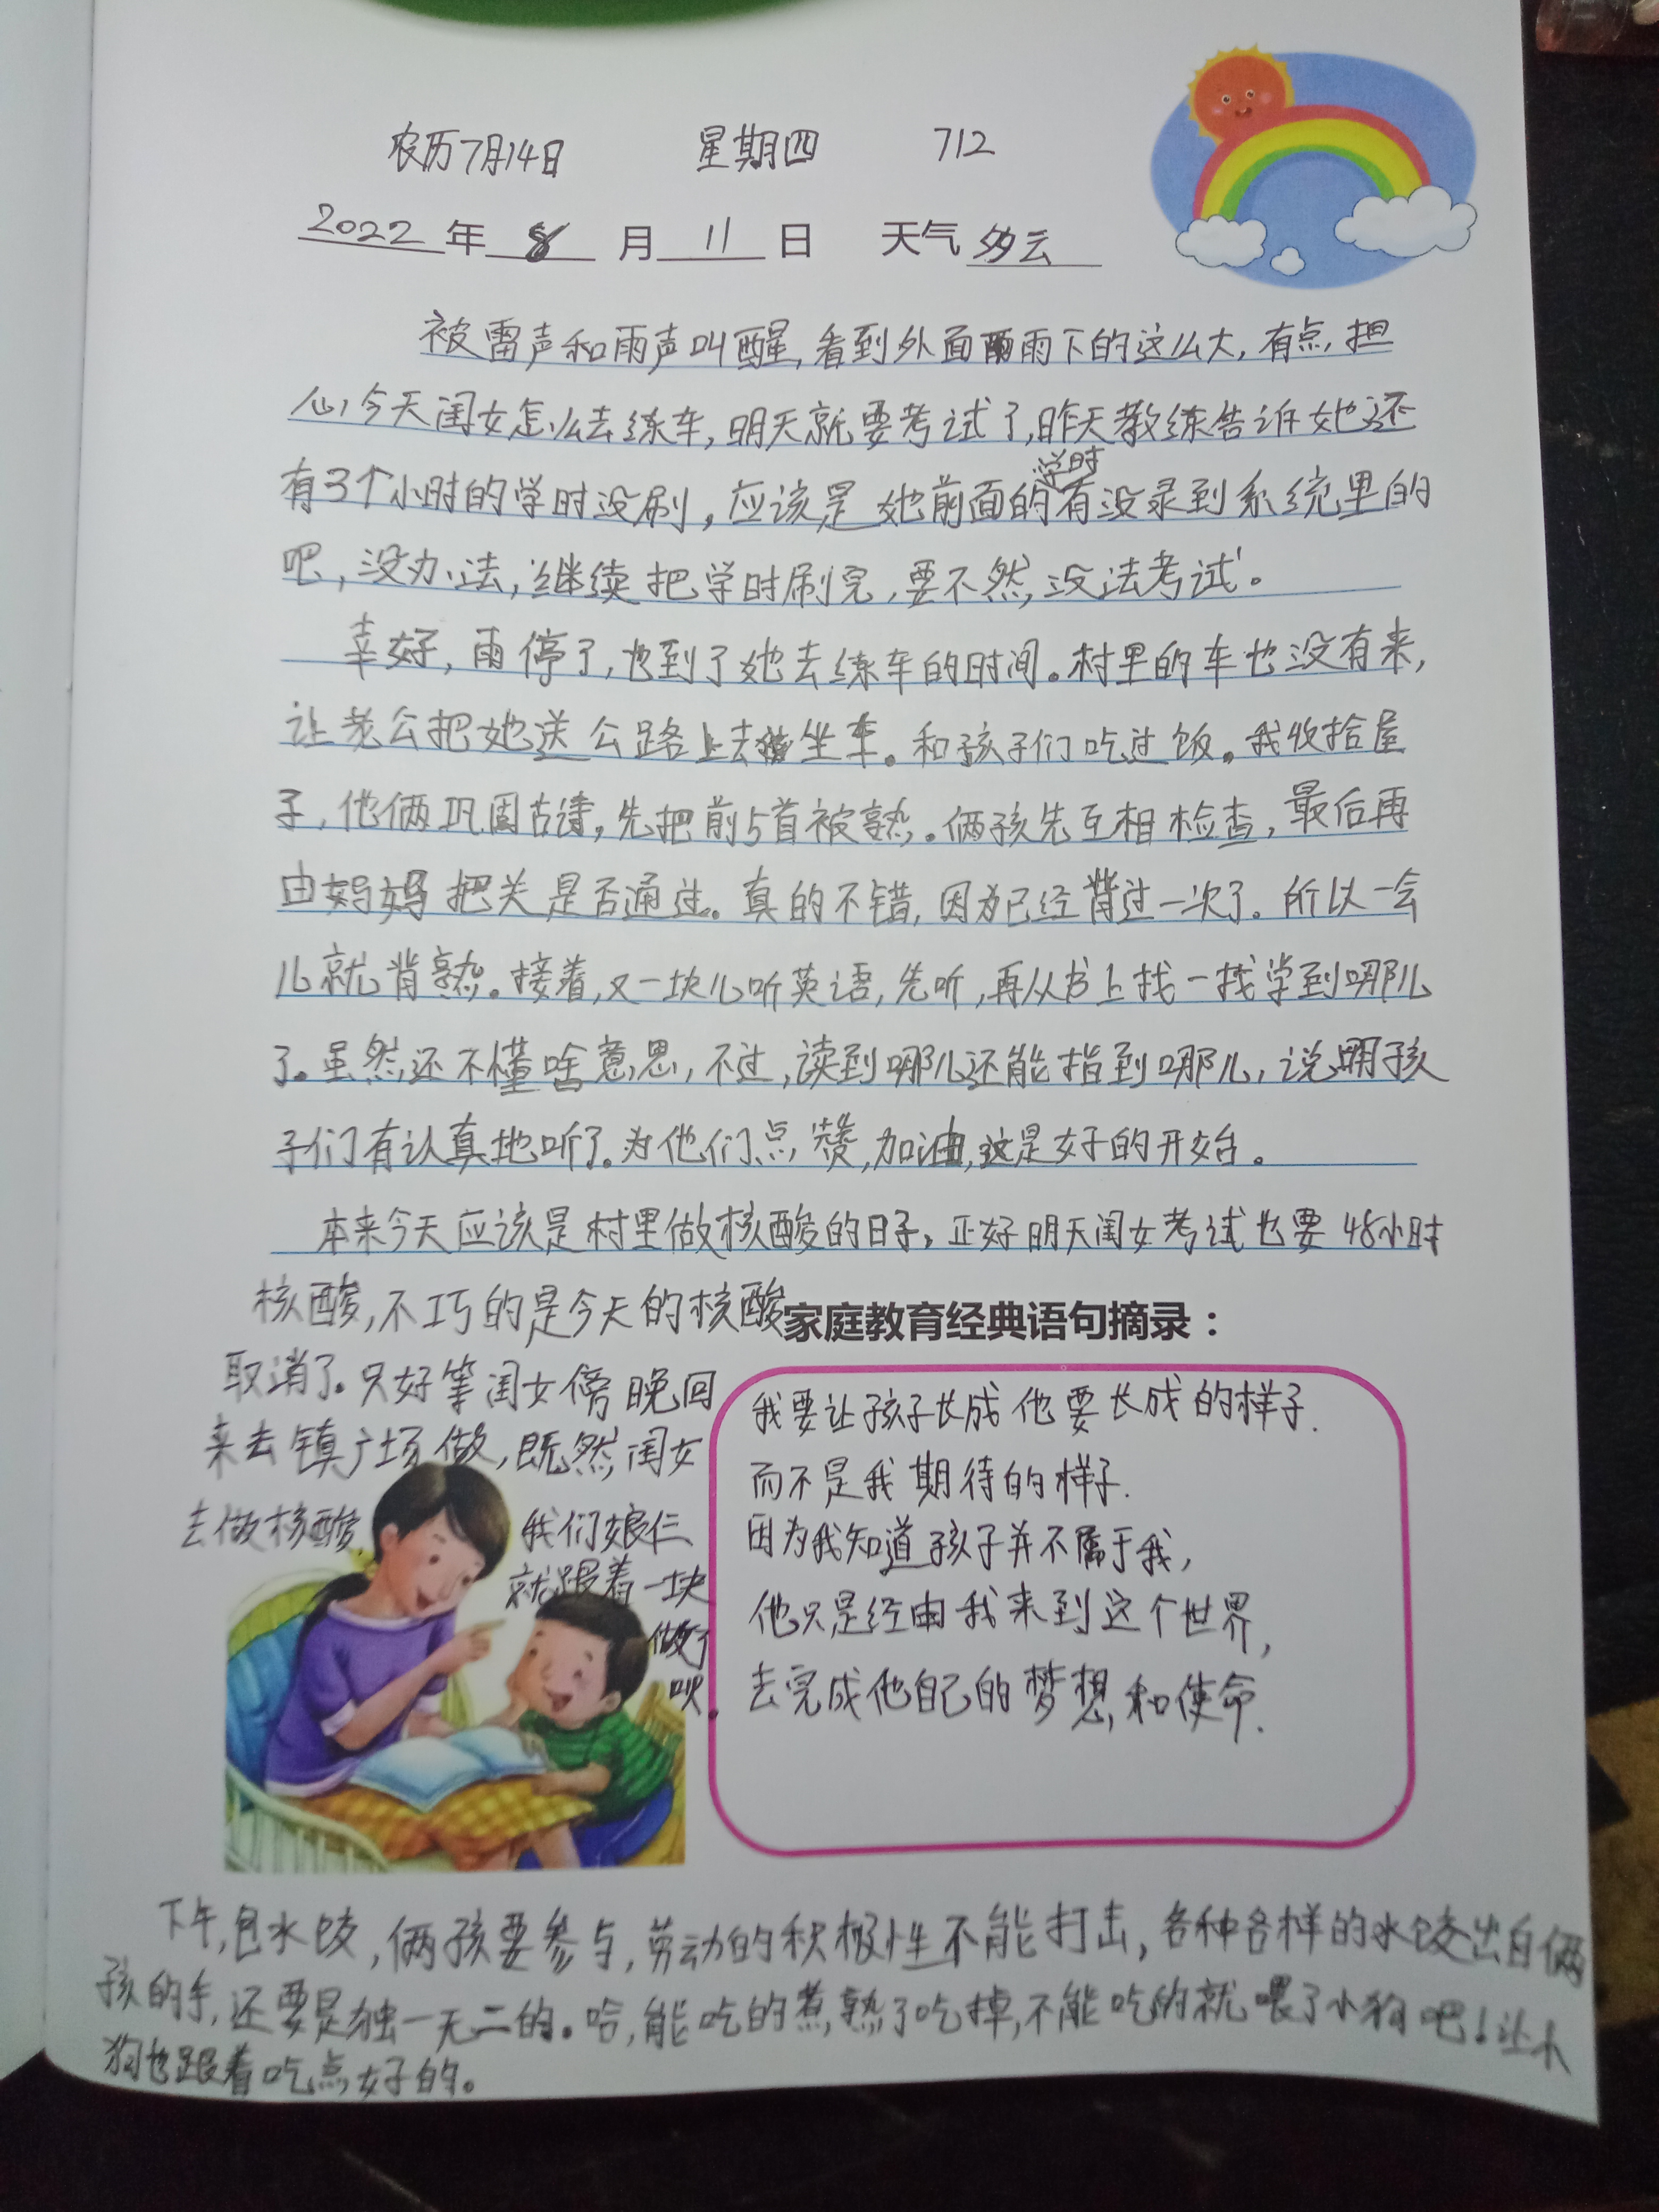 农历7月14日 星期四 712
2022年8月11日 天气多云
被雷声和雨声叫醒,看到外面雨下的这么大,有点担
心今天闺女怎么去练车,明天就要考试了,昨天教练告诉她还
有3个小时的学时没刷,应该是她前面的学时有没录到系统里的
吧,没办法,继续把学时刷完,要不然,没法考试。
幸好,雨停了,也到了她去练车的时间。村里的车也没有来,
让老公把她送公路上去坐车。和孩子们吃过饭。我收拾屋
子,他俩巩固古诗,先把前5首被熟。俩孩先互相检查,最后再
由妈妈把关是否通过。真的不错,因为已经背过一次了。所以一会
儿就背熟。接着,又一块儿听英语,先听,再从书上找一找学到哪儿
了。虽然还不懂啥意思,不过,读到哪儿还能指到哪儿,说明孩
子们有认真地听了。为他们点赞,加油,这是好的开始。
本来今天应该是村里做核酸的日子,正好明天闺女考试也要48小时
核酸,不巧的是今天的核酸
取消了。只好等闺女傍晚回
来去镇广场做,既然闺女
去做核酸,我们娘仨
就跟着一块
做了
呗。
家庭教育经典语句摘录:
我要让孩子长成他要长成的样子.
而不是我期待的样子.
因为我知道孩子并不属于我,
他只是经由我来到这个世界,
去完成他自己的梦想,和使命.
下午,包水饺,俩孩要参与,劳动的积极性不能打击,各种各样的水饺出自俩
孩的手,还要是独一无二的。哈,能吃的煮熟了吃掉,不能吃的就喂了小狗吧!让小
狗也跟着吃点好的。